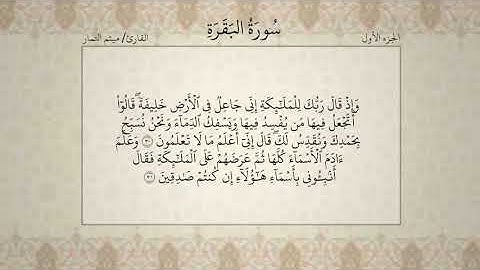 الجزء الأول
سُورَةُ البَقَرَةِ
القارئ/ ميثم التمار
وَإِذْ قَالَ رَبُّكَ لِلْمَلَـٰٓئِكَةِ إِنِّى جَاعِلٌ فِى ٱلْأَرْضِ خَلِيفَةً ۖ قَالُوٓا۟
أَتَجْعَلُ فِيهَا مَن يُفْسِدُ فِيهَا وَيَسْفِكُ ٱلدِّمَآءَ وَنَحْنُ نُسَبِّحُ
بِحَمْدِكَ وَنُقَدِّسُ لَكَ ۖ قَالَ إِنِّىٓ أَعْلَمُ مَا لَا تَعْلَمُونَ ٣٠ وَعَلَّمَ
ءَادَمَ ٱلْأَسْمَآءَ كُلَّهَا ثُمَّ عَرَضَهُمْ عَلَى ٱلْمَلَـٰٓئِكَةِ فَقَالَ
أَنۢبِـُٔونِى بِأَسْمَآءِ هَـٰٓؤُلَآءِ إِن كُنتُمْ صَـٰدِقِينَ ٣١